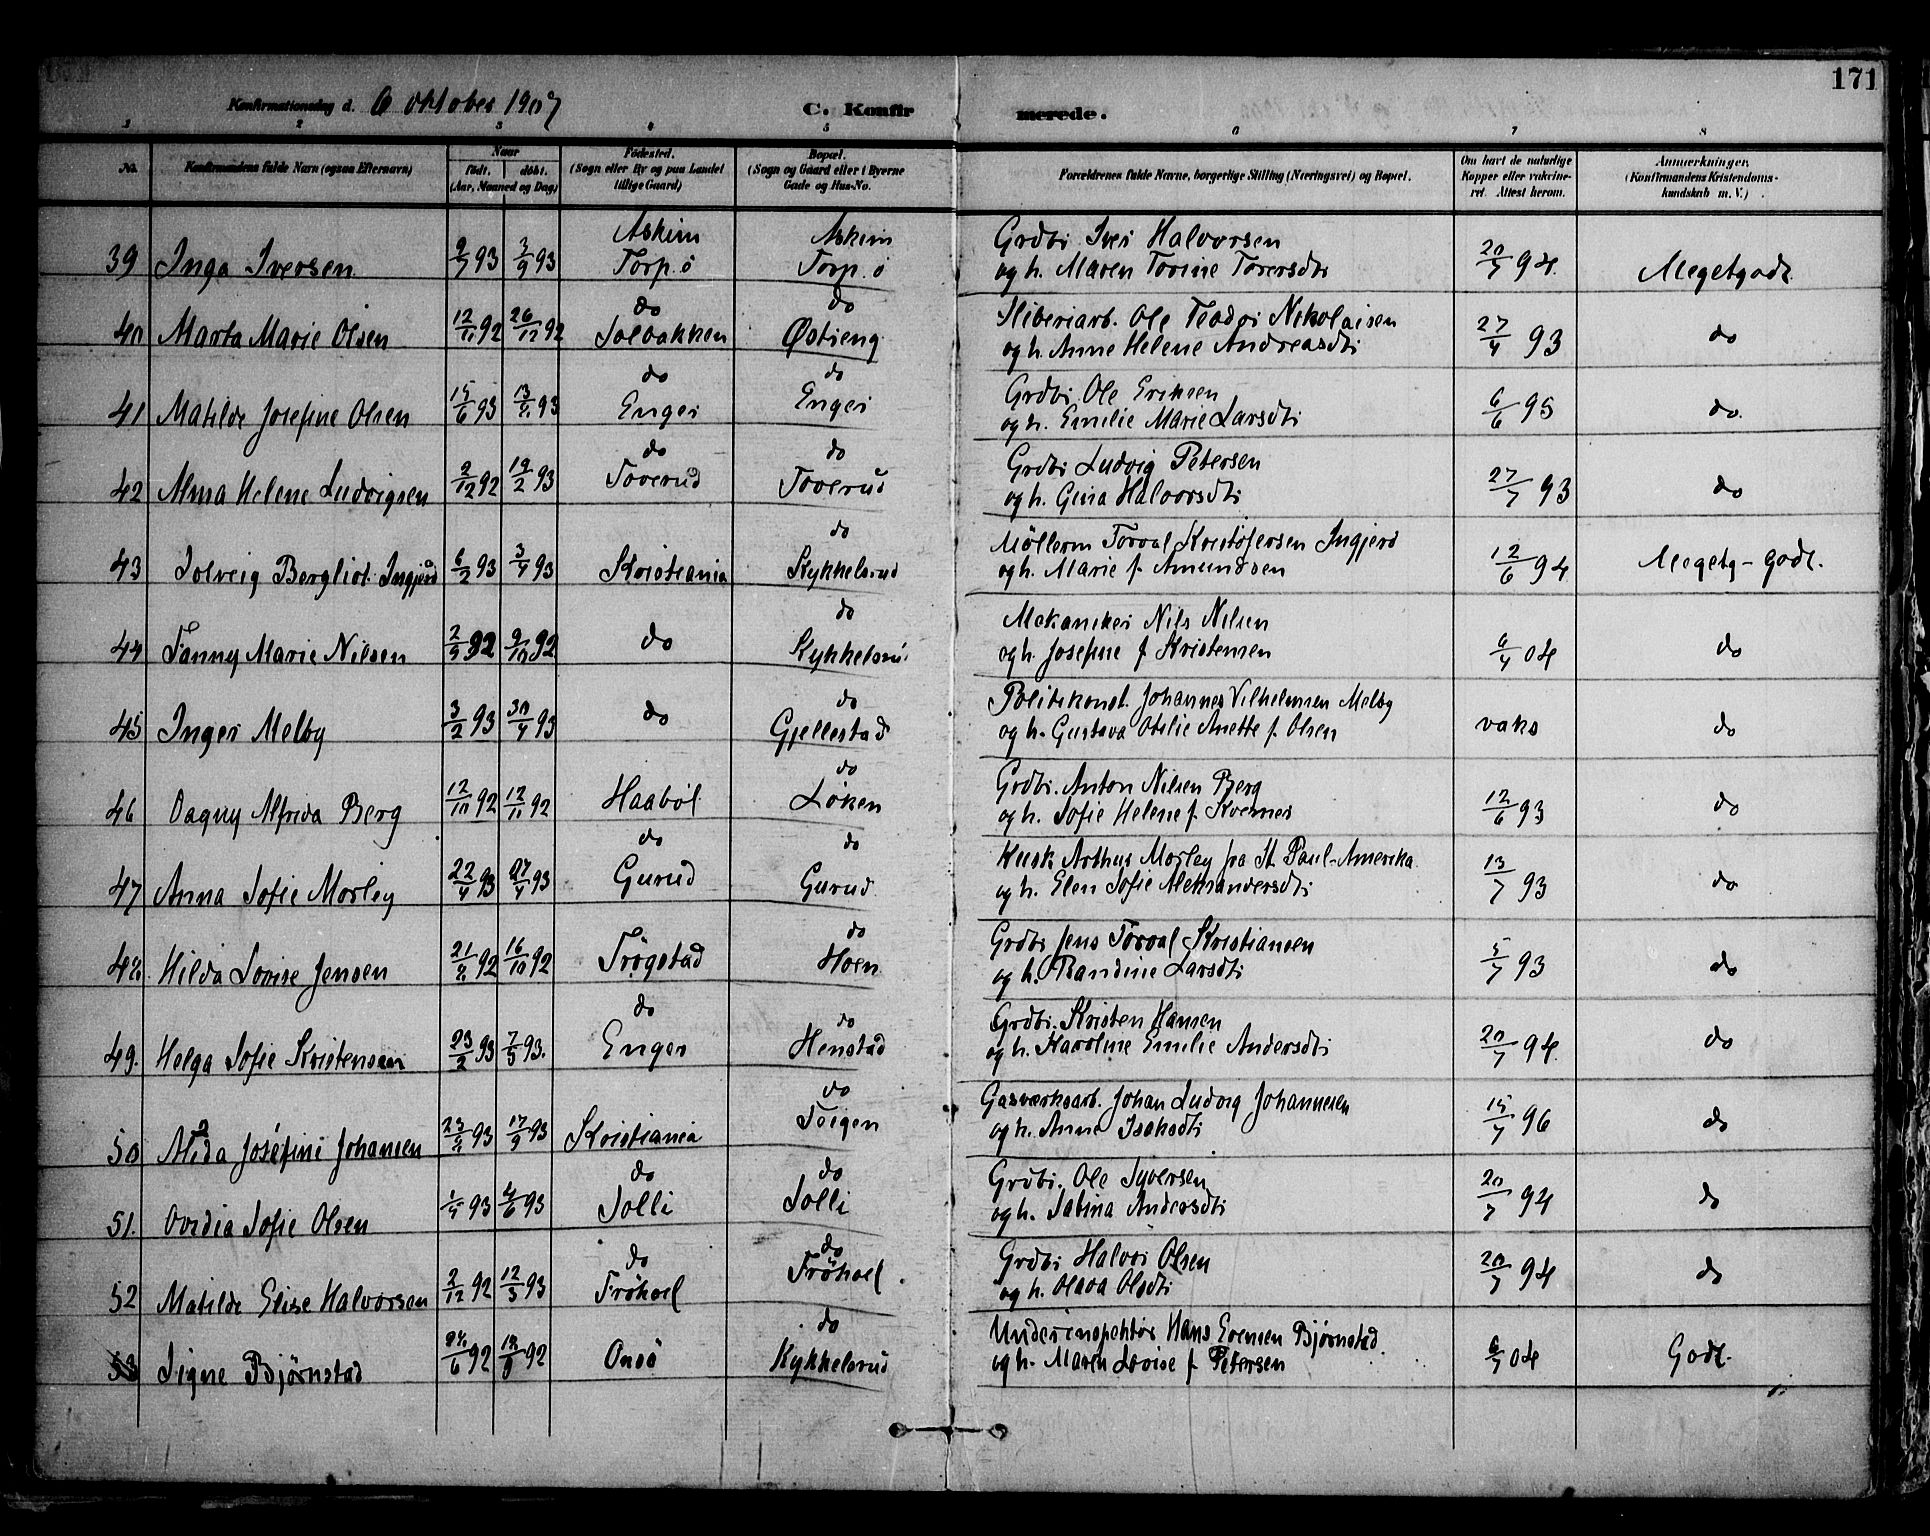 171
Konfirmationsdag d. 6 oktober 1907 C. Konfirmerede.
1 2 3 4 5 6 7 8
No. Konfirmandens fulde Navn (ogsaa Efternavn) Naar født. døbt. (Aar, Maaned og Dag) Fødested. (Sogn eller By og paa Landet tillige Gaard) Bopæl. (Sogn og Gaard eller i Byerne Gade og Hus-No. Forældrenes fulde Navne, borgerlige Stilling (Næringsvei) og Bopæl. Om havt de naturlige Kopper eller vakcineret. Attest herom. Anmærkninger. (Konfirmandens Kristendomskundskab m. V.)
39 Inga Iversen 9/7 93 3/9 93 Askim Torp. ö Askim Torp. ö Grdbr. Iver Halvorsen 20/7 94. Megetgodt.
og h. Maren Torine Torersdtr
40 Marta Marie Olsen 12/11 92 26/12 92 do Solbakken do Østreng Sliberiarb. Ole Teodor Nikolaisen 27/4 93 do
og h. Anne Helene Andreasdtr
41 Matilde Josefine Olsen 15/6 93 13/8 93 do Enger do Enger Grdbr. Ole Eriksen 6/6 95 do.
og h. Emilie Marie Larsdtr
42 Alma Helene Ludvigsen 2/12 92 19/2 93 do Toverud do Toverud Grdbr Ludvig Petersen 27/7 93 do
og h. Gina Halvorsdtr
43 Solveig Bergliot Ingjerd 6/2 93 3/4 93 Kristiania do Kykkelsrud Möllerm Torval Kristofersen Ingjerd 12/6 94 Megetg-Godt.
og h. Marie f. Amundsen
44 Fanny Marie Nilsen 2/9 92 9/10 92 do do Kykkelsrud Mekaniker Nils Nilsen 6/4 04 do
og h. Josefine f Kristensen
45 Inger Melby 3/2 93 30/4 93 do do Gjellestad Politikonst. Johannes Vilhelmsen Melby vaks do
og h. Gustava Otilie Anette f. Olsen
46 Dagny Alfrida Berg 12/10 92 12/11 92 Haaböl do Løken Grdbr. Anton Nilsen Berg 12/6 93 do
og h. Sofie Helene f. Kvernes
47 Anna Sofie Morley 22/4 93 27/4 93 do Gurud do Gurud Kusk Arthur Morley fra St Paul-Amerika 13/7 93 do
og h. Elen Sofie Aleksandersdtr
48. Hilda Lovise Jensen 21/8 92 16/10 92 Trögstad do Hoen Grdbr Jens Torval Kristiansen 5/7 93 do
og h. Randine Larsdtr
49. Helga Sofie Kristensen 23/2 93 7/5 93. do Enger do Henstad Grdbr. Kristen Hansen 20/7 94. do
og h. Karoline Emilie Andersdtr
50 Alida Josefine Johansen 23/8 93 17/9 93 Kristiania do Teigen Gasværksarb. Johan Ludvig Johannesen 15/7 96 do
og h. Anne Isaksdtr
51. Ovidia Sofie Olsen 1/4 93 4/6 93 do Solli do Solli Grdbr. Ole Syversen 20/7 94 do
og h. Sabina Andersdtr
52 Matilde Elise Halvorsen 2/12 92 12/3 93 do Fröhoel do Fröhoel. Grdbr Halvor Olsen 20/7 94 do
og h. Olava Olsdtr
53 Signe Bjørnstad 24/6 92 18/9 92 Onsö do Kykkelsrud Underinspektör Hans Evensen Bjørnstad. 6/7 04 Godt.
og h. Maren Lovise f. Petersen